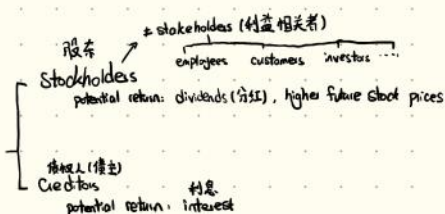 ≠ stakeholders (利益相关者)
employees customers investors ....
股东
Stockholders
potential return: dividends (分红), higher future stock prices
债权人 (债主)
Creditors
利息
potential return: interest